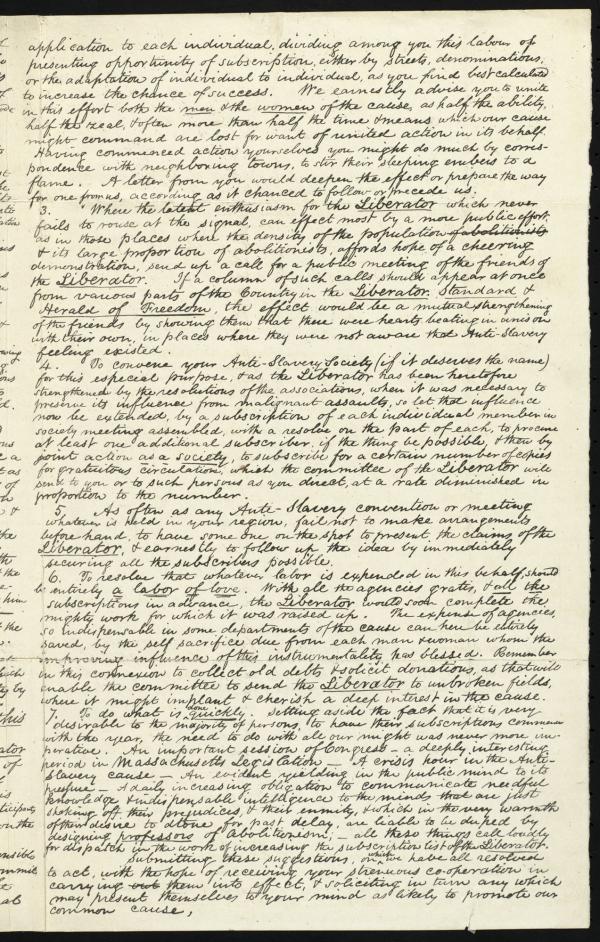 application to each individual, dividing among you this labour of
presenting opportunity of subscription, either by streets, denominations,
or the adaptation of individual to individual, as you find best calculated
to increase the chance of success. We earnestly advise you to unite
in this effort both the men & the women of the cause, as half the ability,
half the zeal, & often more than half the time & means which our cause
might command are lost for want of united action in its behalf.
Having commenced action yourselves you might do much by corres-
pondence with neighboring towns, to stir their sleeping embers to a
flame. A letter from you would deepen the effect or prepare the way
for one from us, according as it chanced to follow or precede us.
3. Where the latent enthusiasm for the Liberator which never
fails to rouse at the signal, can effect most by a more public effort,
as in those places where the density of the population of abolitionists
& its large proportion of abolitionists, affords hope of a cheering
demonstration, send up a call for a public meeting of the friends of
the Liberator. If a column of such calls should appear at once
from various parts of the Country in the Liberator, Standard &
Herald of Freedom, the effect would be a mutual strengthening
of the friends by showing them that there were hearts beating in unison
with their own, in places where they were not aware that Anti-Slavery
feeling existed.
4. To convene your Anti-Slavery Society (if it deserves the name)
for this especial purpose, & as the Liberator has been heretofore
strengthened by the resolutions of the associations, when it was necessary to
preserve its influence from malignant assaults, so let that influence
now be extended, by a subscription of each individual member in
society meeting assembled, with a resolve on the part of each, to procure
at least one additional subscriber, if the thing be possible, & then by
joint action as a society, to subscribe for a certain number of copies
for gratuitous circulation, which the committee of the Liberator will
send to you or to such persons as you direct, at a rate diminished in
proportion to the number.
5. As often as any Anti-Slavery convention or meeting
whatever is held in your region, fail not to make arrangements
before hand, to have some one on the spot to present, the claims of the
Liberator, & earnestly to follow up the idea by immediately
securing all the subscribers possible.
6. To resolve that whatever labor is expended in this behalf, should
be entirely a labor of love. With all the agencies gratis, & all the
subscriptions in advance, the Liberator would soon complete the
mighty work for which it was raised up. The expense of agencies,
so indispensable in some departments of the cause can here be entirely
saved, by the self sacrifice due from each man & woman whom the
improving influence of this instrumentality has blessed. Remember
in this connexion to collect old debts & solicit donations, as that will
enable the committee to send the Liberator to unbroken fields,
where it might implant & cherish a deep interest in the cause.
7. To do what is done quickly. Setting aside the fact that it is very
desirable to the majority of persons, to have their subscriptions commence
with the year, the need to do with all our might was never more im-
perative. An important session of Congress — a deeply interesting
period in Massachusetts Legislation — A crisis hour in the Anti-
Slavery cause — An evident yielding in the public mind to its
pressure — A daily increasing obligation to communicate needful
knowledge & indispensable intelligence to the minds that are just
shaking off their prejudices, & their enmity, & which in the very warmth
of their desire to atone for past delay, are liable to be duped by
designing professors of abolitionism; — all these things call loudly
for dispatch in the work of increasing the subscription list of the Liberator.
Submitting these suggestions, on which we have all resolved
to act, with the hope of receiving your strenuous co-operation in
carrying out them into effect, & soliciting in turn any which
may present themselves to your mind as likely to promote our
common cause,